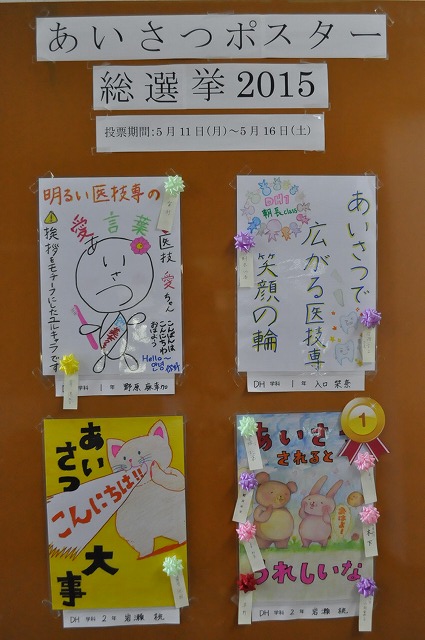 あいさつポスター
総選挙2015
投票期間:5月11日(月)～5月16日(土)
明るい医技専の
愛言葉
医技愛ちゃん
あいさつ
挨拶をモチーフにしたユルキャラです
こんばんは
こんにちわ
おはよう
Hello
DH 1
朝長class
あいさつで
広がる医技専
笑顔の輪
学科 1年 野原 麻希加
DH 学科 1年 入口 栞奈
あいさつ
こんにちは!!
大事
1
あいさつ
されると
おはよー
うれしいな
DH 学科 2年 岩瀬 桃
DH 学科 2年 岩瀬 桃